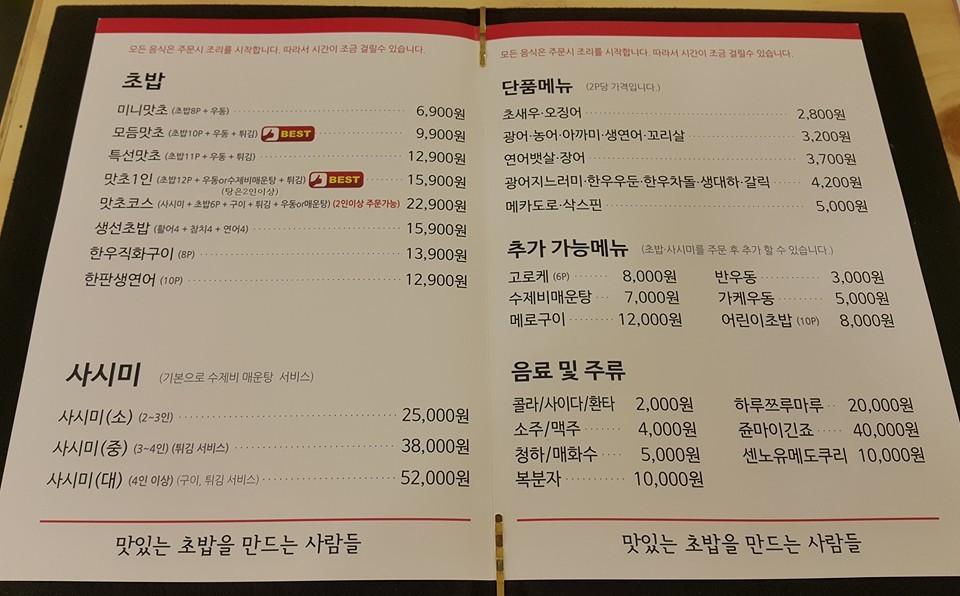 모든 음식은 주문시 조리를 시작합니다. 따라서 시간이 조금 걸릴수 있습니다.
초밥
미니맛초 (초밥8P + 우동) 6,900원
모듬맛초 (초밥10P + 우동 + 튀김) BEST 9,900원
특선맛초 (초밥11P + 우동 + 튀김) 12,900원
맛초1인 (초밥12P + 우동or수제비매운탕 + 튀김) BEST 15,900원
(탕은2인이상)
맛초코스 (사시미 + 초밥6P + 구이 + 튀김 + 우동or매운탕) (2인이상 주문가능) 22,900원
생선초밥 (활어4 + 참치4 + 연어4) 15,900원
한우직화구이 (8P) 13,900원
한판생연어 (10P) 12,900원
사시미 (기본으로 수제비 매운탕 서비스)
사시미(소) (2~3인) 25,000원
사시미(중) (3~4인) (튀김 서비스) 38,000원
사시미(대) (4인 이상) (구이, 튀김 서비스) 52,000원
맛있는 초밥을 만드는 사람들
모든 음식은 주문시 조리를 시작합니다. 따라서 시간이 조금 걸릴수 있습니다.
단품메뉴 (2P당 가격입니다.)
초새우·오징어 2,800원
광어·농어·아까미·생연어·꼬리살 3,200원
연어뱃살·장어 3,700원
광어지느러미·한우우둔·한우차돌·생대하·갈릭 4,200원
메카도로·삭스핀 5,000원
추가 가능메뉴 (초밥·사시미를 주문 후 추가 할 수 있습니다.)
고로케 (6P) 8,000원 반우동 3,000원
수제비매운탕 7,000원 가케우동 5,000원
메로구이 12,000원 어린이초밥 (10P) 8,000원
음료 및 주류
콜라/사이다/환타 2,000원 하루쯔루마루 20,000원
소주/맥주 4,000원 쥰마이긴죠 40,000원
청하/매화수 5,000원 센노유메도쿠리 10,000원
복분자 10,000원
맛있는 초밥을 만드는 사람들